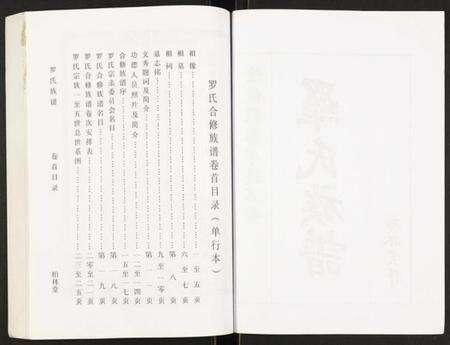 罗氏合修族谱卷首目录（单行本）
祖像……一至五页
祖墓……六至七页
祖祠……第八页
墓志铭……九至一〇页
文秀题词及简介……第一一页
功德人员照片及简介……一二至一四页
合修族谱序……一五至一七页
罗氏宗亲委员会名目……第一八页
罗氏合修族谱名目……第一九页
罗氏合修族谱卷次安排表……二零至二一页
罗氏宗族一至五世总世系图……二三至二五页
罗氏族谱
卷首目录
柏林堂
羅氏族譜